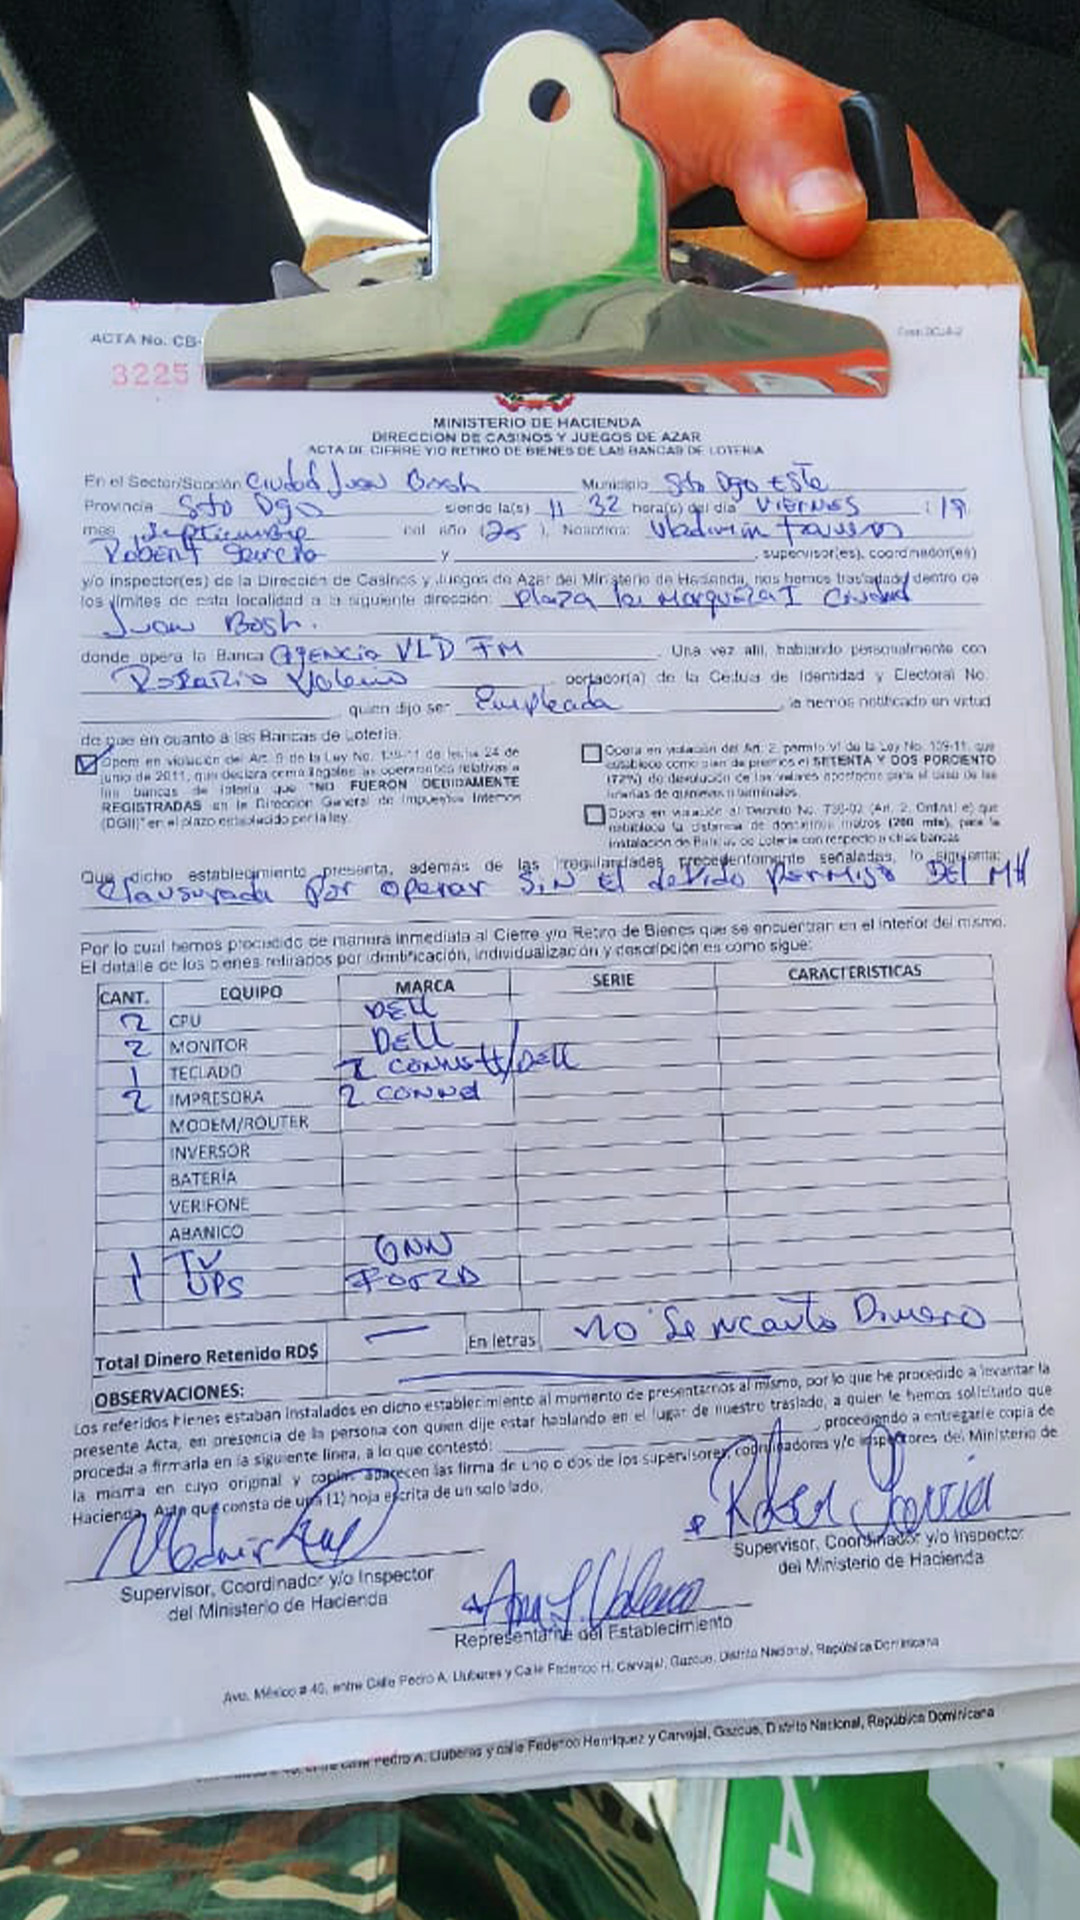 ACTA No. CB-
3225
MINISTERIO DE HACIENDA
DIRECCION DE CASINOS Y JUEGOS DE AZAR
ACTA DE CIERRE Y/O RETIRO DE BIENES DE LAS BANCAS DE LOTERIA
En el Sector/Sección Ciudad Juan Bosh Municipio Sto Dgo Este
Provincia Sto Dgo siendo la(s) 11 32 hora(s) del día VIERNES 19
mes Septiembre del año (25), Nosotros:
Robert García y , supervisor(es), coordinador(es)
y/o inspector(es) de la Dirección de Casinos y Juegos de Azar del Ministerio de Hacienda, nos hemos trasladado dentro de
los límites de esta localidad a la siguiente dirección: Plaza la Marqueza I Ciudad
Juan Bosh.
donde opera la Banca Agencia VLD FM . Una vez allí, hablando personalmente con
Rosario Valerio portador(a) de la Cédula de Identidad y Electoral No.
quien dijo ser Empleada , le hemos notificado en virtud
de que en cuanto a las Bancas de Lotería:
Opera en violación del Art. 6 de la Ley No. 139-11 de fecha 24 de
junio de 2011, que declara como ilegales las operaciones relativas a
las bancas de lotería que "NO FUERON DEBIDAMENTE
REGISTRADAS en la Dirección General de Impuestos Internos
(DGII)" en el plazo establecido por la ley.
Opera en violación del Art. 2, párrafo VI de la Ley No. 139-11, que
establece como plan de premios el SETENTA Y DOS PORCIENTO
(72%) de devolución de los valores apostados para el caso de las
Opera en violación al Decreto No. 730-02 (Art. 2, Ordinal e) que
establece la distancia de doscientos metros (200 mts), para la
instalación de Bancas de Lotería con respecto a otras bancas
Que dicho establecimiento presenta, además de las irregularidades precedentemente señaladas, lo siguiente:
Clausurada Por operar SIN El devido Permiso DEL MH
Por lo cual hemos procedido de manera inmediata al Cierre y/o Retiro de Bienes que se encuentran en el interior del mismo.
El detalle de los bienes retirados por identificación, individualización y descripción es como sigue:
CANT. EQUIPO MARCA SERIE CARACTERISTICAS
2 CPU DELL
2 MONITOR DELL
1 TECLADO DELL
2 IMPRESORA 2
MODEM/ROUTER
INVERSOR
BATERÍA
VERIFONE
ABANICO
1 TV
1 UPS FORZA
Total Dinero Retenido RD$ — En letras No Se ncauto Dinero
OBSERVACIONES:
Los referidos bienes estaban instalados en dicho establecimiento al momento de presentarnos al mismo, por lo que he procedido a levantar la
presente Acta, en presencia de la persona con quien dije estar hablando en el lugar de nuestro traslado, a quien le hemos solicitado que
proceda a firmarla en la siguiente línea, a lo que contestó: , procediendo a entregarle copia de
la misma en cuyo original y copias aparecen las firma de uno o dos de los supervisores, coordinadores y/o inspectores del Ministerio de
Hacienda. Acta que consta de una (1) hoja escrita de un solo lado.
Robert García
Supervisor, Coordinador y/o Inspector
del Ministerio de Hacienda
Supervisor, Coordinador y/o Inspector
del Ministerio de Hacienda
Representante del Establecimiento
Ave. México # 40, entre Calle Pedro A. Lluberes y Calle Federico H. Carvajal, Gazcue, Distrito Nacional, República Dominicana
entre calle Pedro A. Lluberes y calle Federico Henríquez y Carvajal, Gazcue, Distrito Nacional, República Dominicana